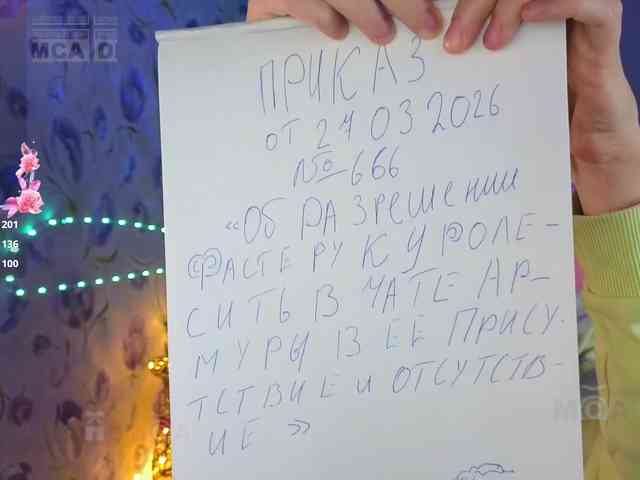 МСА
201
136
100
ПРИКАЗ
ОТ 27 03 2026
№ 666
«ОБ РАЗРЕШЕНИИ
ФАСТЕРУ КУРОЛЕ-
СИТЬ В ЧАТЕ АР-
МУРЫ В ЕЕ ПРИСУ-
ТСТВИЕ И ОТСУТСТВ-
ИЕ »